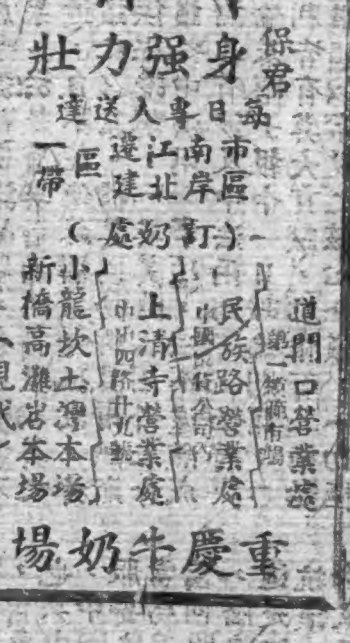 保君
身强力壯
每日專人送達
市區 南岸 江北 遷建區 一帶
(訂奶處)
道門口營業處
民族路營業處
中國貨公司內
上清寺營業處
中山四路廿九號
小龍坎土灣本場
新橋高灘岩本場
重慶牛奶場